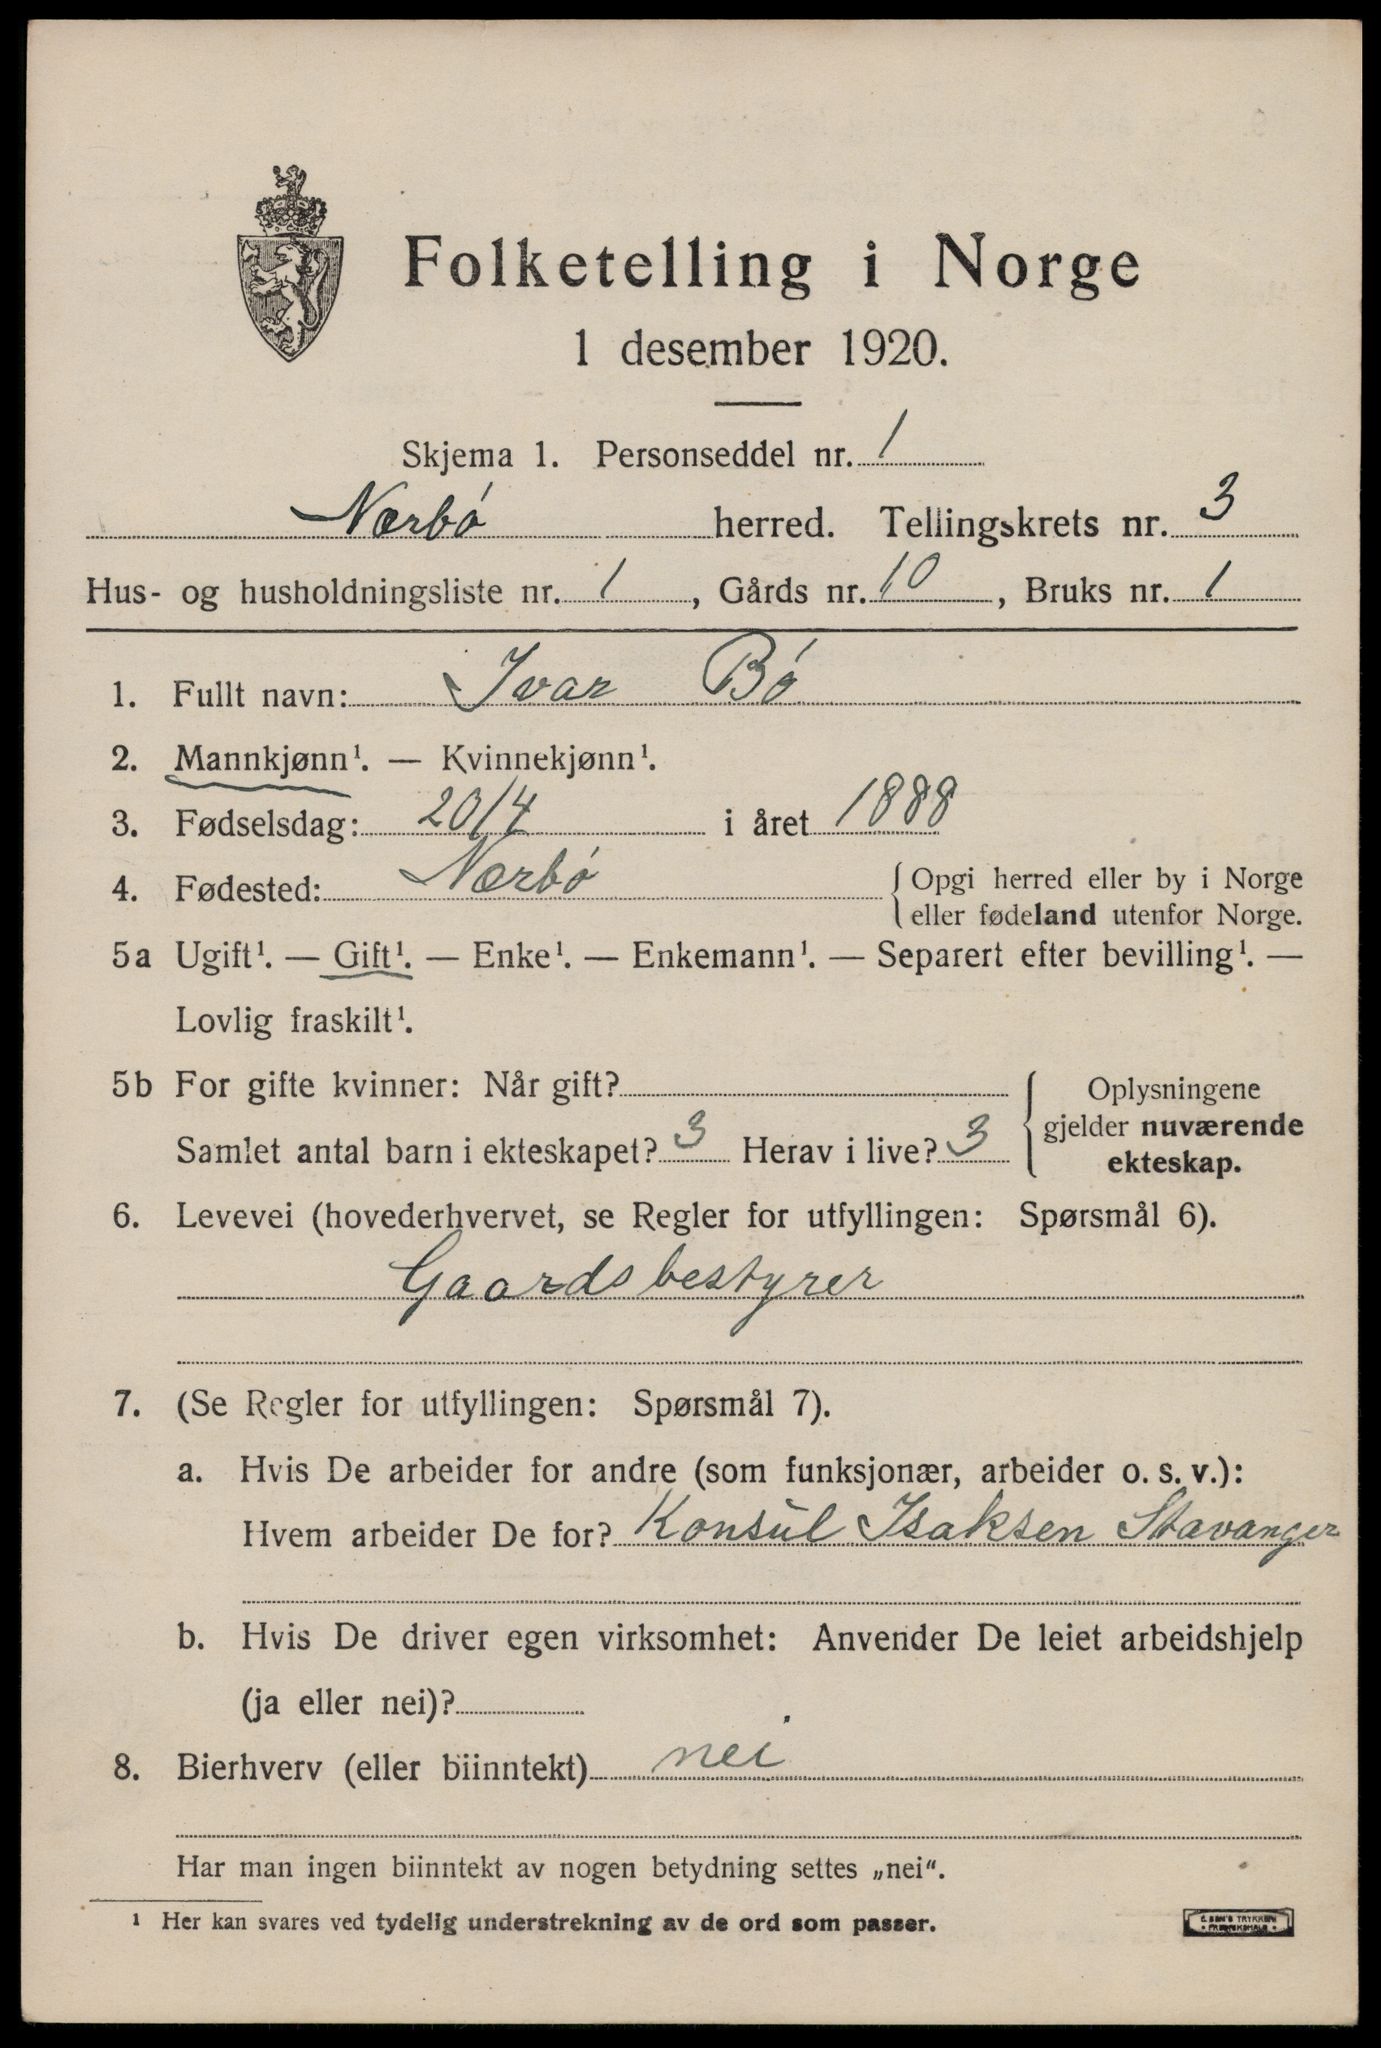 Folketelling i Norge
1 desember 1920.
Skjema 1. Personseddel nr. 1
Nærbó herred. Tellingskrets nr. 3
Hus- og husholdningsliste nr. 1, Gårds nr. 10, Bruks nr. 1
1. Fullt navn: Ivar Bó
2. Mannkjønn¹. — Kvinnekjønn¹.
3. Fødselsdag: 20/4 i året 1888
4. Fødested: Nærbó {Opgi herred eller by i Norge
eller fødeland utenfor Norge.
5a Ugift¹. — Gift¹. — Enke¹. — Enkemann¹. — Separert efter bevilling¹. —
Lovlig fraskilt¹.
5b For gifte kvinner: Når gift?
Samlet antal barn i ekteskapet? 3 Herav i live? 3
{Oplysningene
gjelder nuværende
ekteskap.
6. Levevei (hovederhvervet, se Regler for utfyllingen: Spørsmål 6).
Gaardsbestyrer
7. (Se Regler for utfyllingen: Spørsmål 7).
a. Hvis De arbeider for andre (som funksjonær, arbeider o. s. v.):
Hvem arbeider De for? Konsul Isaksen Stavanger
b. Hvis De driver egen virksomhet: Anvender De leiet arbeidshjelp
(ja eller nei)?
8. Bierhverv (eller biinntekt) nei
Har man ingen biinntekt av nogen betydning settes „nei“.
¹ Her kan svares ved tydelig understrekning av de ord som passer.